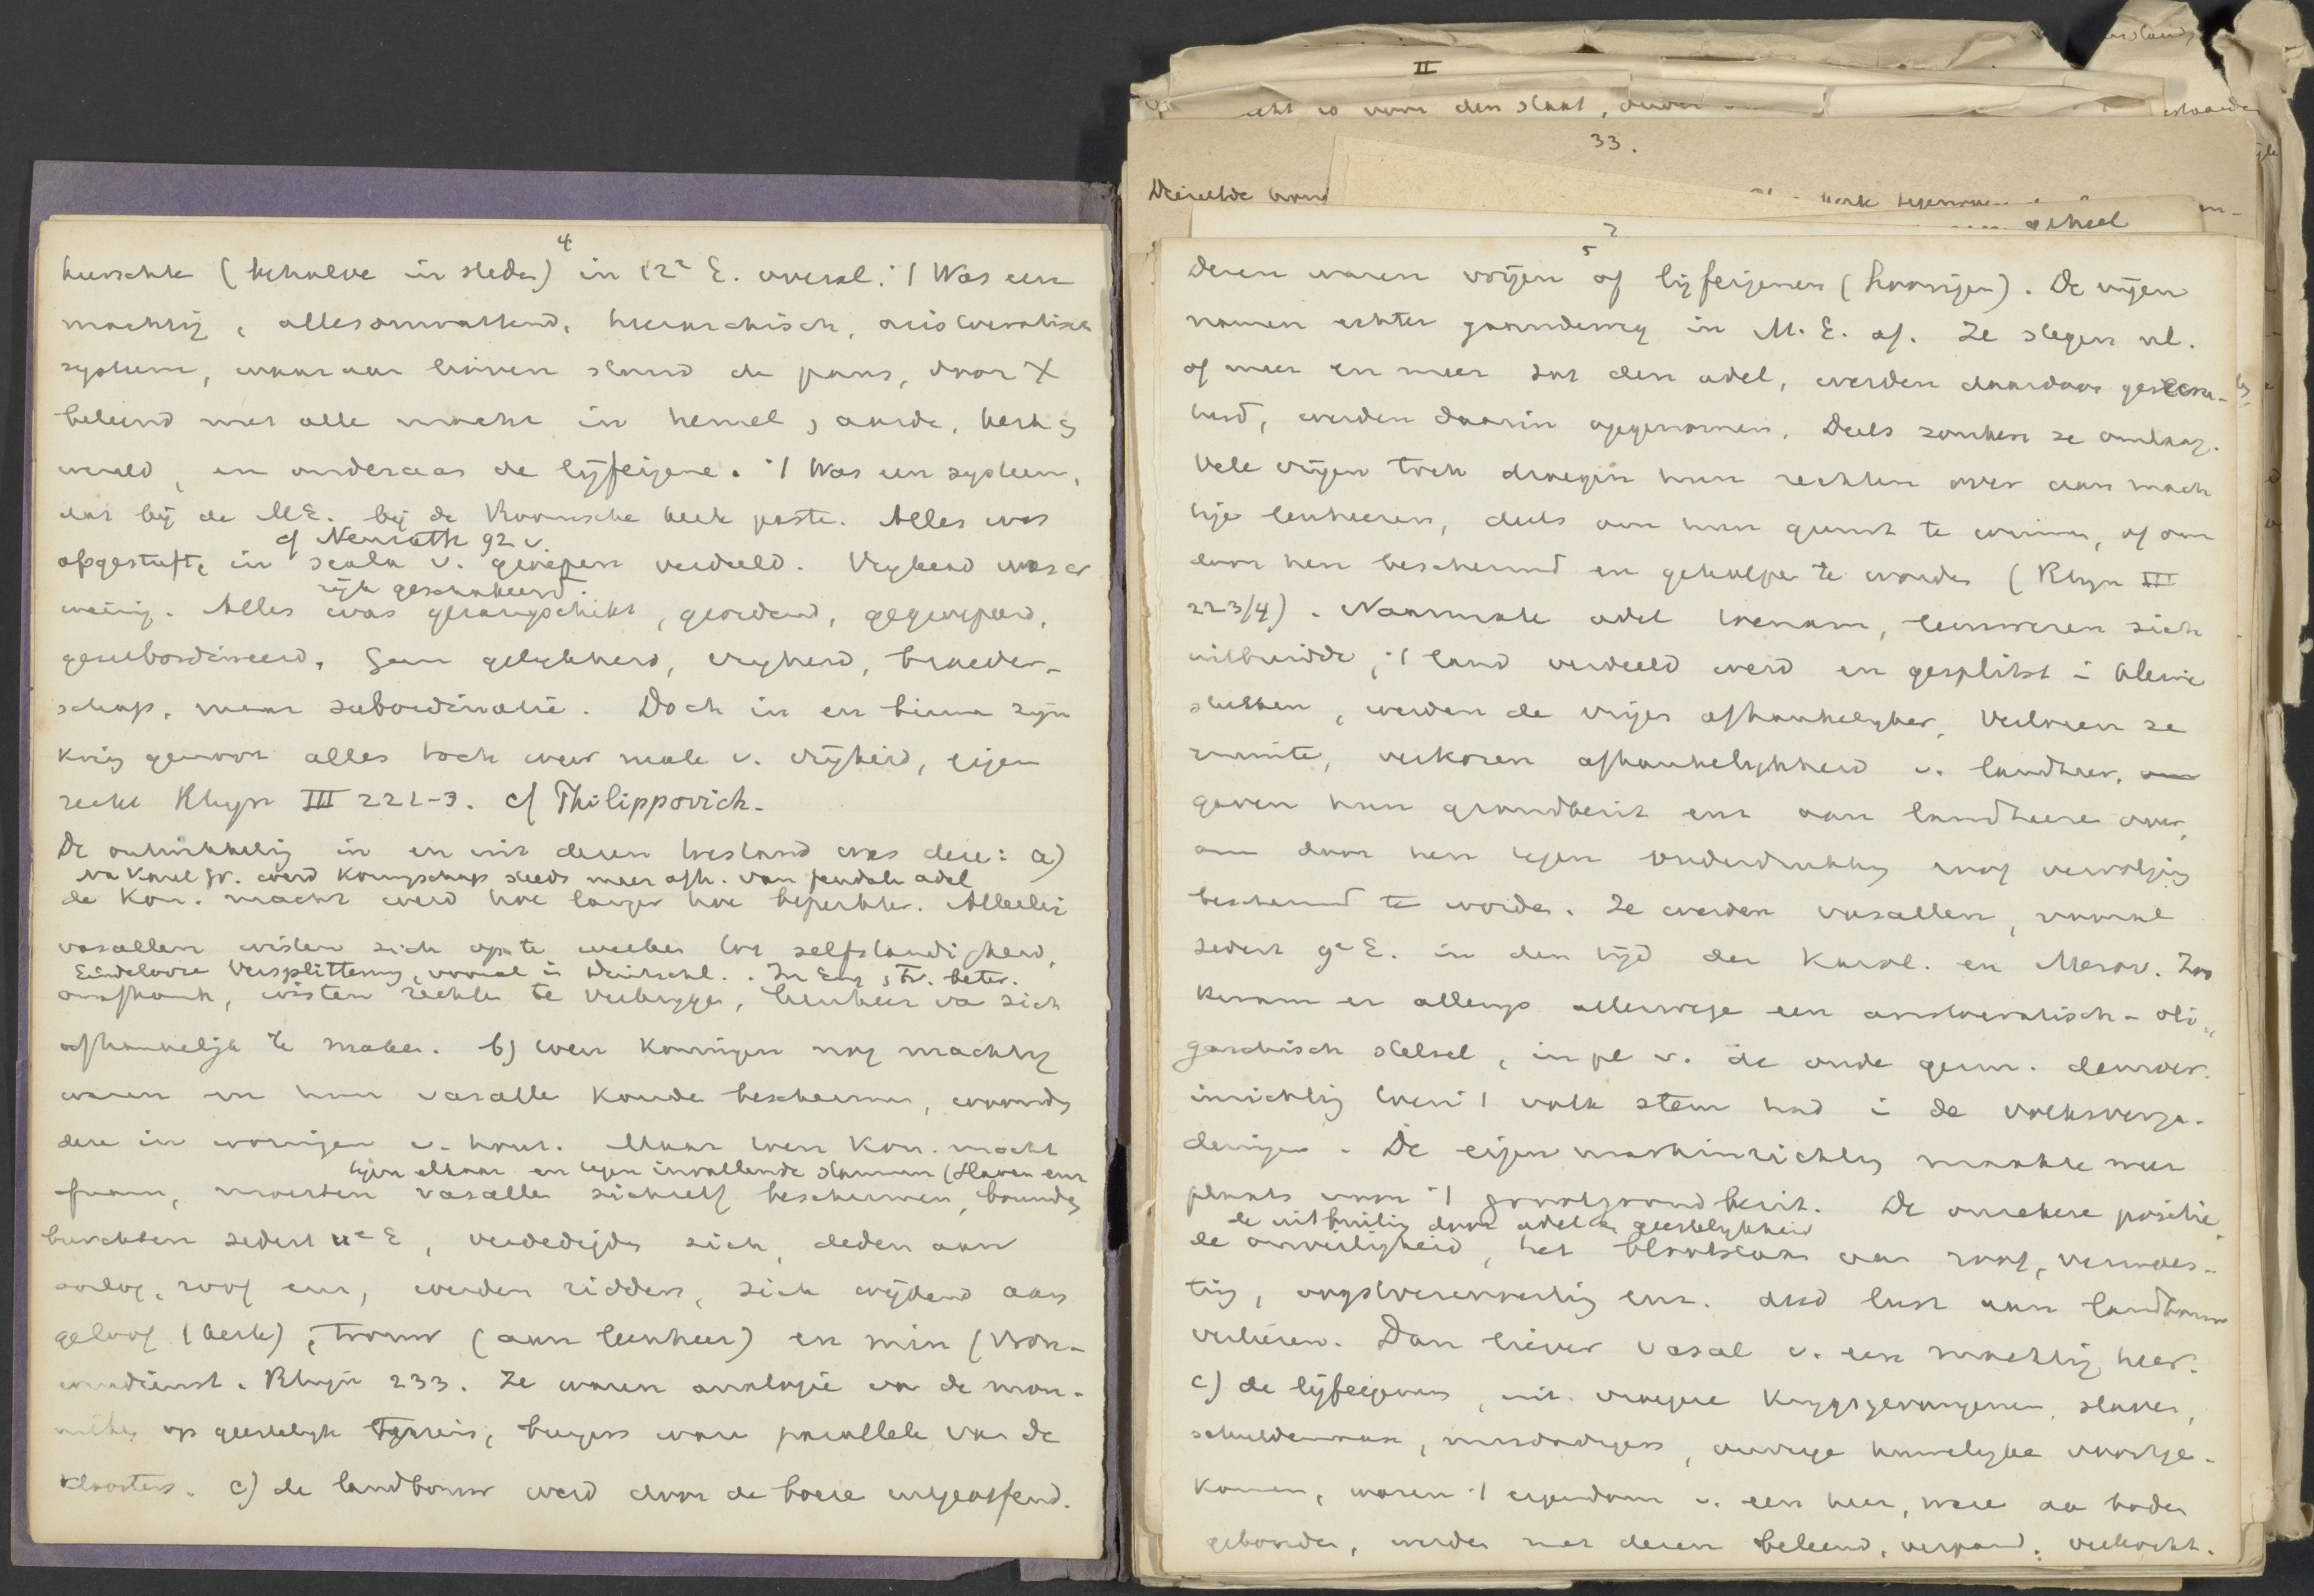 4
heerschte (behalve in steden) in 12e E. overal. 't Was een
machtig, allesomvattend, hierarchisch, aristocratisch
systeem, waaraan boven stond de paus, door X
beleend met alle macht in hemel, aarde, kerk en
wereld, en onderaan de lijfeigene. 't Was een systeem,
dat bij de ME. bij de Roomsche kerk paste. Alles was
cf Neurath 92 v
afgestuft, in scala v. groepen verdeeld. Vryheid was er
rijk geschakeerd
weinig. Alles was gerangschikt, geordend, gegroepeerd,
gesubordineerd. Geen gelykheid, vryheid, broeder-
schap, maar subordinatie. Doch in en binnen zijn
kring genoot alles toch weer mate v. vrijheid, eigen
recht Rhyn III 221-3. cf Philippovich.
De ontwikkeling in en uit dezen toestand was deze: a)
Na Karel Gr. werd Koningschap steeds meer afh. van feudale adel
de Kon. macht werd hoe langer hoe beperkter. Allerlei
vasallen wisten zich op te werken tot zelfstandigheid,
Eindelooze Versplittering, vooral in Duitschl. . In Eng, Fr. beter.
onafhank, wisten rechten te verkrygen, leenheer van zich
afhankelijk te maken. b) toen Koningen nog machtig
waren en hun vasallen konden beschermen, woonden
deze in woningen v. hout. Maar toen Kon. macht
tegen elkaar en tegen invallende stammen (Slaven enz
afnam, moesten vasallen zichzelf beschermen, bouwden
burchten sedert 11e E, verdedigden zich, deden aan
oorlog, roof enz, werden ridders, zich wijdend aan
geloof (kerk), trouw (aan leenheer) en min (vrou-
wendienst. Rhijn 233. Ze waren analogie van de mon-
niken op geestelijk terrein, burgen waren parallele van de
kloosters. c) de landbouw werd door de boeren uitgeoefend.
5
Dezen waren vrijen of lijfeigenen (hoorigen). De vrijen
namen echter gaandeweg in M.E. af. Ze stegen nl.
of meer en meer tot den adel, werden daardoor geabsor-
beerd, werden daarin opgenomen. Deels zonken ze omlaag.
Vele vrijen toch droegen hun rechten over aan mach
tige leenheeren, deels om hun gunst te winnen, of om
door hen beschermd en geholpen te worden (Rhyn III
223/4). Naarmate adel toenam, leenwezen zich
uitbreidde, 't land verdeeld werd en gesplitst in kleine
stukken, werden de vrijen afhankelyker, verloren ze
ruimte, verkozen afhankelykheid v. landheer,
gaven hun grondbezit enz aan landheeren over,
om door hen tegen onderdrukking enz vervolging
beschermd te worden. Ze werden vasallen, vooral
sedert 9e E. in den tijd der Karol. en Merov. Zoo
kwam er allengs allerwege een aristocratisch-oli-
garchisch stelsel, in pl v. de oude germ. democr.
inrichting toen 't volk stem had in de volksverga-
deringen. De eigen markinrichting maakte meer
plaats voor 't grootgrondbezit. De onzekere positie,
de uitbuiting door adel en geestelykheid
de onveiligheid, het blootstaan aan roof, verwoes-
ting, enz. deed lust aan landbouw
verliezen. Dan liever vasal v. een machtig heer.
c) de lijfeigenen, uit vroegere Krygsgevangenen, slaven,
schuldenaars, misdadigers, huwelyken voortge-
komen, waren 't eigendom v. een heer, waren aan bodem
gebonden, werden met dezen beleend, verpand, verkocht.
II
33.
geheel